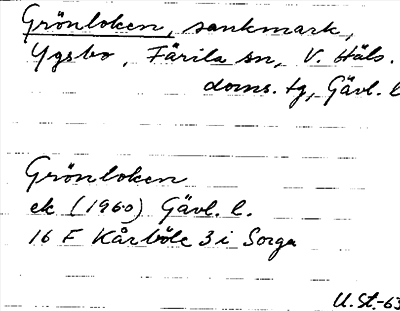 Grönloken, sankmark,
Ygsbo, Färila sn, V. Häls.
doms. tg, Gävl. l
Grönloken
ek (1960) Gävl. l.
16 F Kårböle 3 i Sorga
U.St.-63